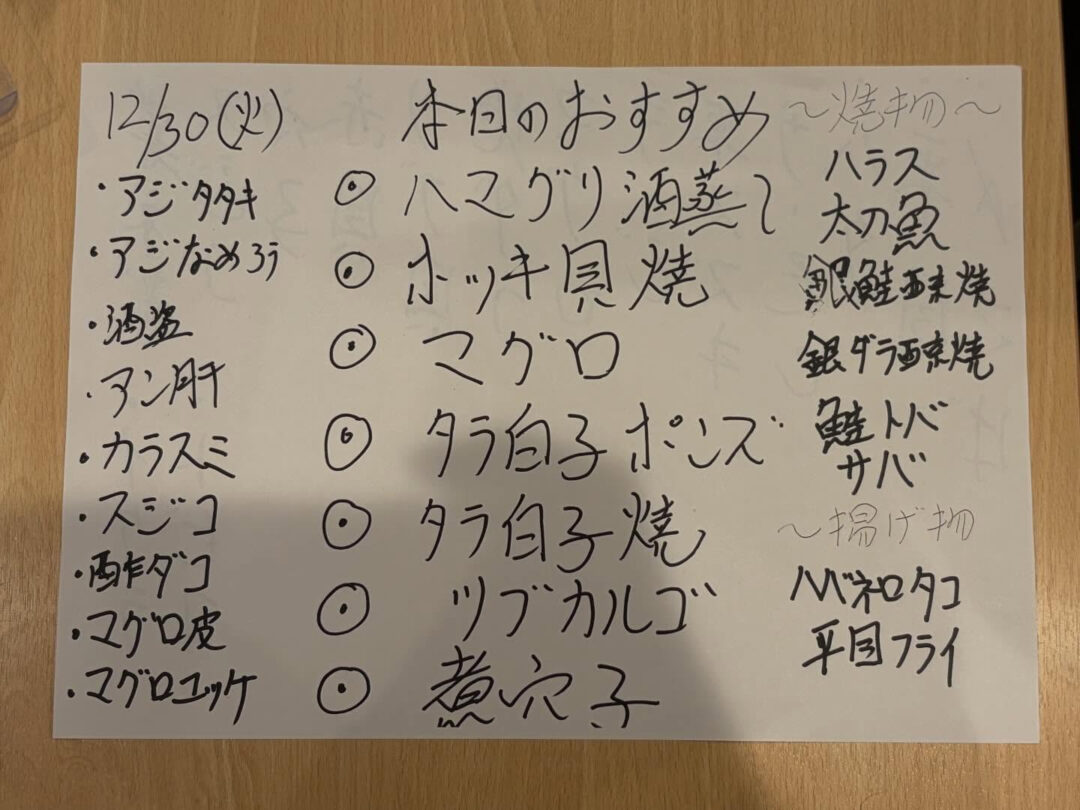 12/30(火)
・アジタタキ
・アジなめろう
・酒盗
・アン肝
・カラスミ
・スジコ
・酢ダコ
・マグロ皮
・マグロユッケ
本日のおすすめ
◉ ハマグリ酒蒸し
◉ ホッキ貝焼
◉ マグロ
◉ タラ白子ポンズ
◉ タラ白子焼
◉ ツブカルゴ
◉ 煮穴子
～焼物～
ハラス
太刀魚
銀鮭西京焼
銀ダラ西京焼
鮭トバ
サバ
～揚げ物
ハバネロタコ
平目フライ